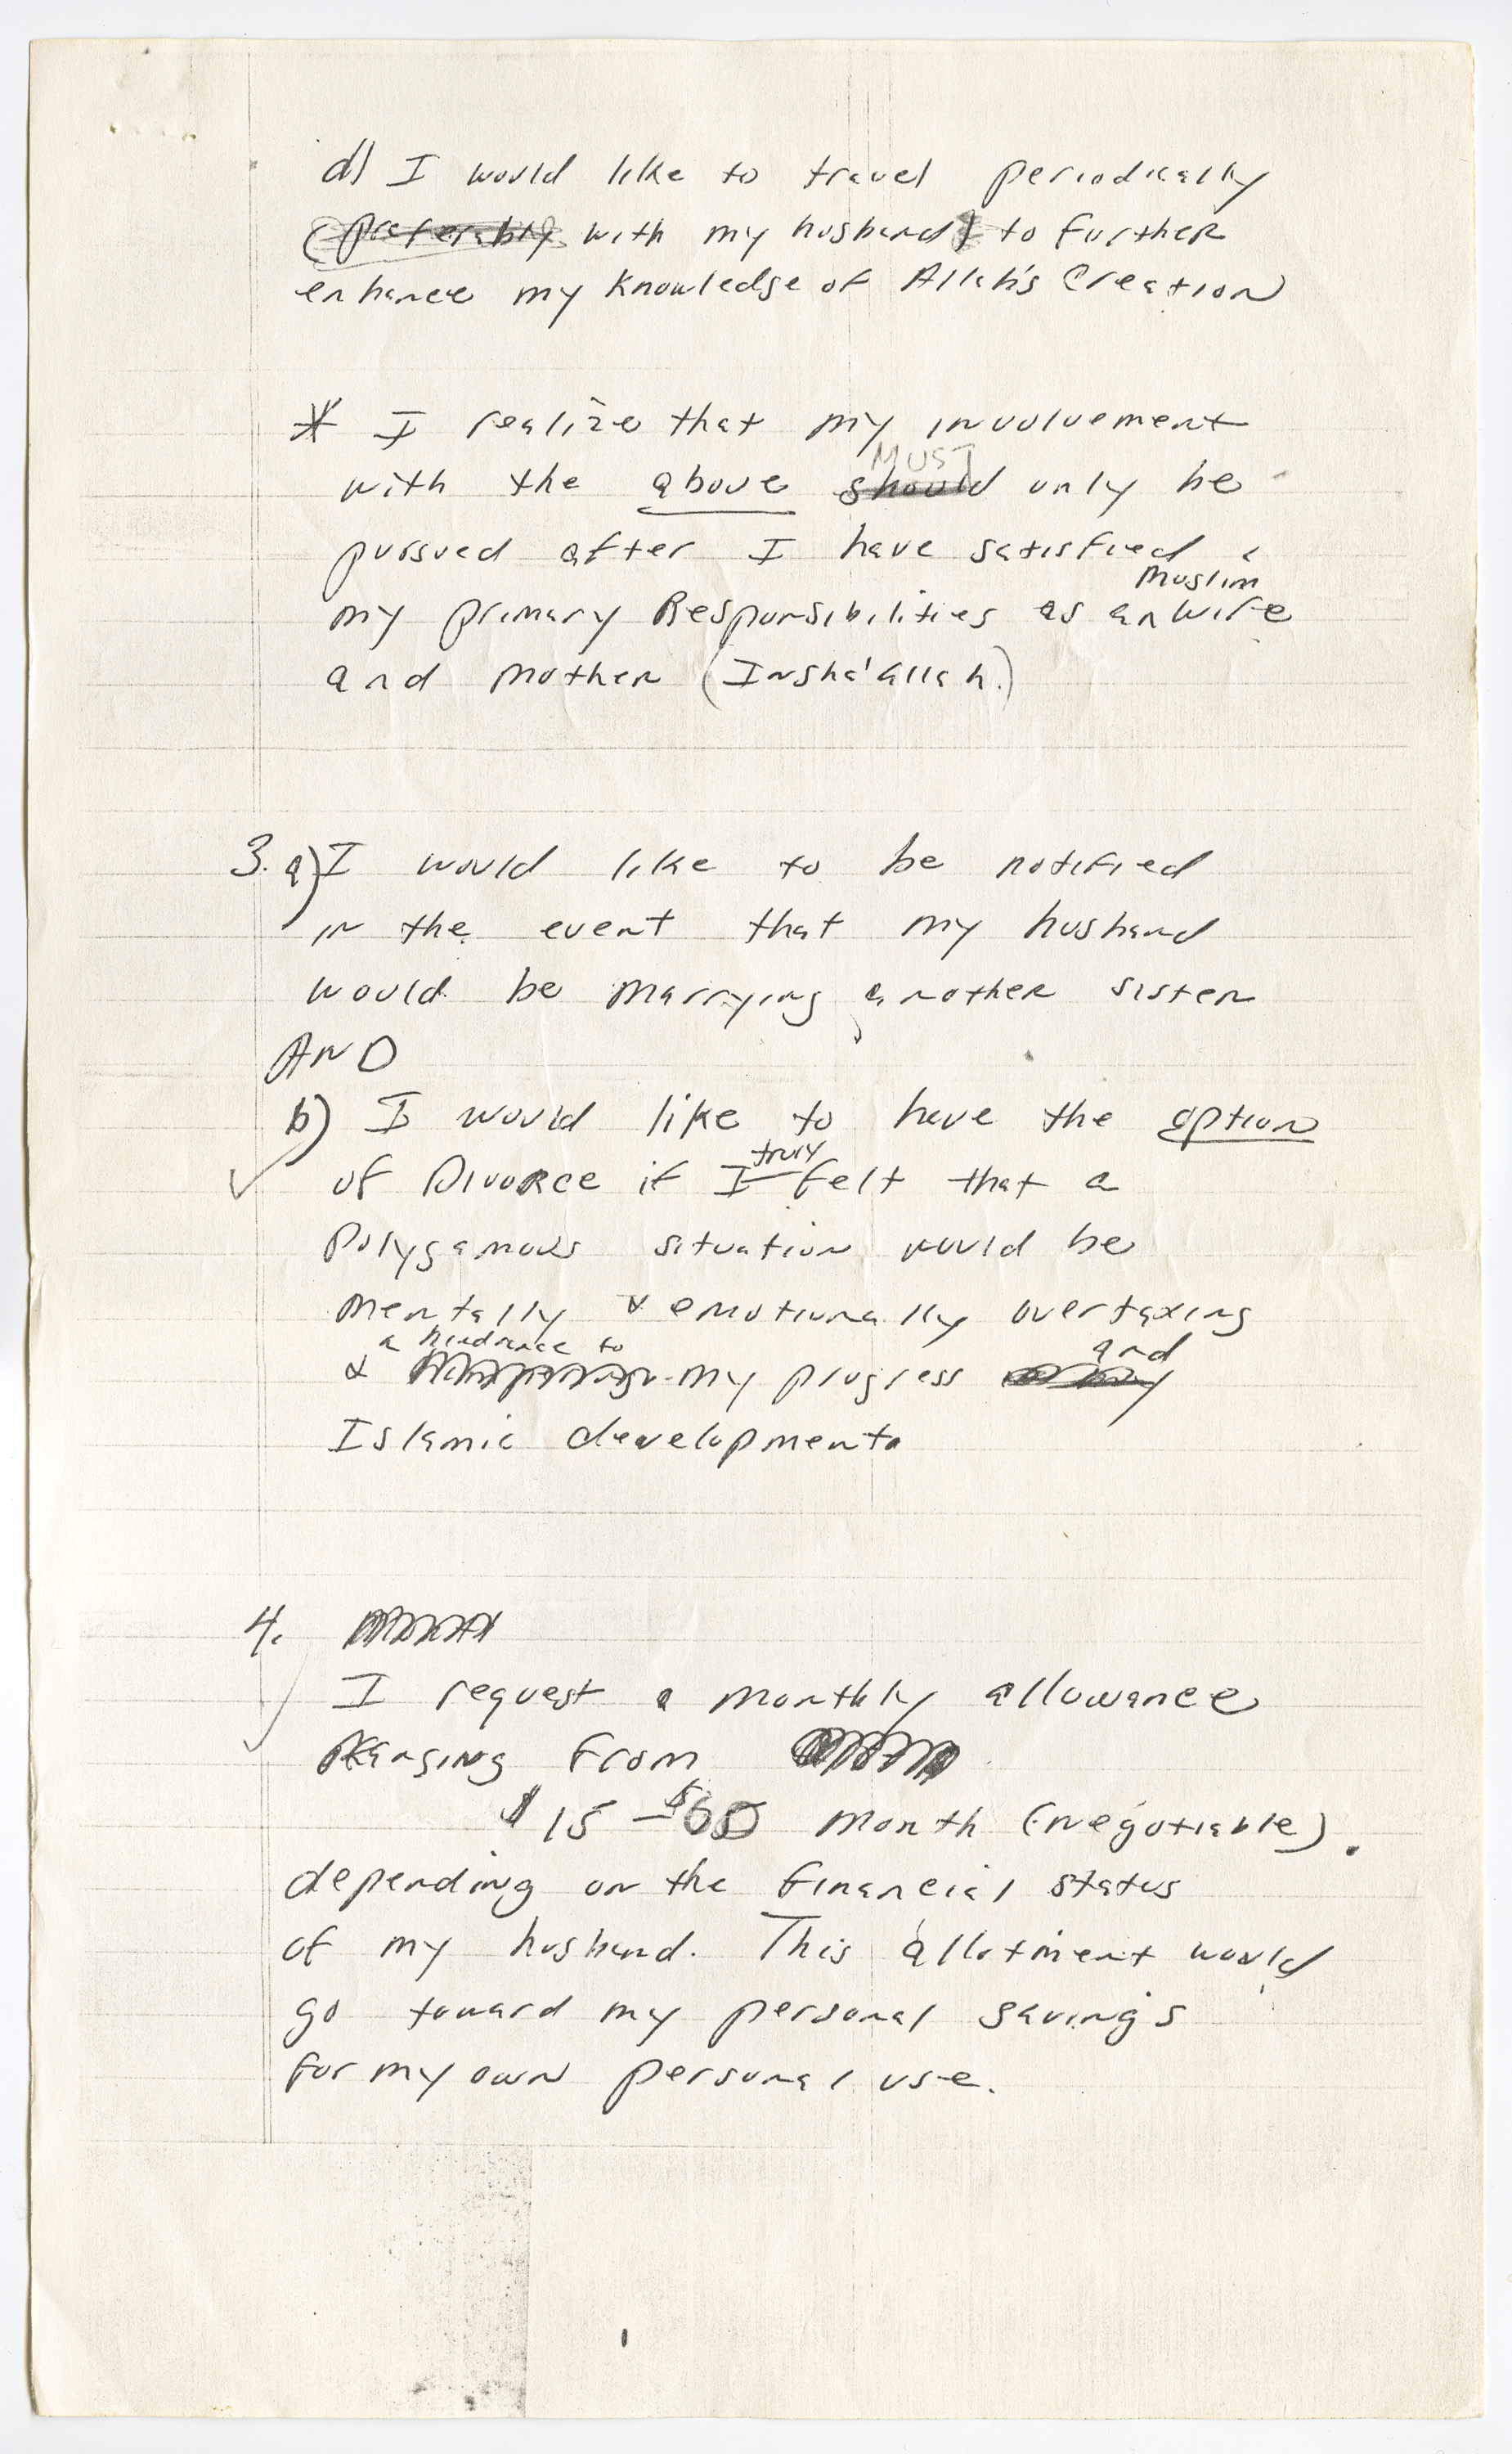 d) I would like to travel periodically
(preferably with my husband) to further
enhance my knowledge of Allah's Creation
* I realize that my involvement
MUST
with the above should only be
pursued after I have satisfied
muslim
my primary Responsibilities as an wife
and mother (Insha'allah.)
3. a) I would like to be notified
in the event that my husband
would be marrying another sister
AND
b) I would like to have the option
truly
of Divorce if I felt that a
Polygamous situation would be
mentally & emotionally overtaxing
a hindrance to and
& my progress
Islamic development.
4.
I request a monthly allowance
Ranging from
$15 - $60 month (negotiable).
depending on the financial status
of my husband. This allotment would
go toward my personal savings
for my own personal use.